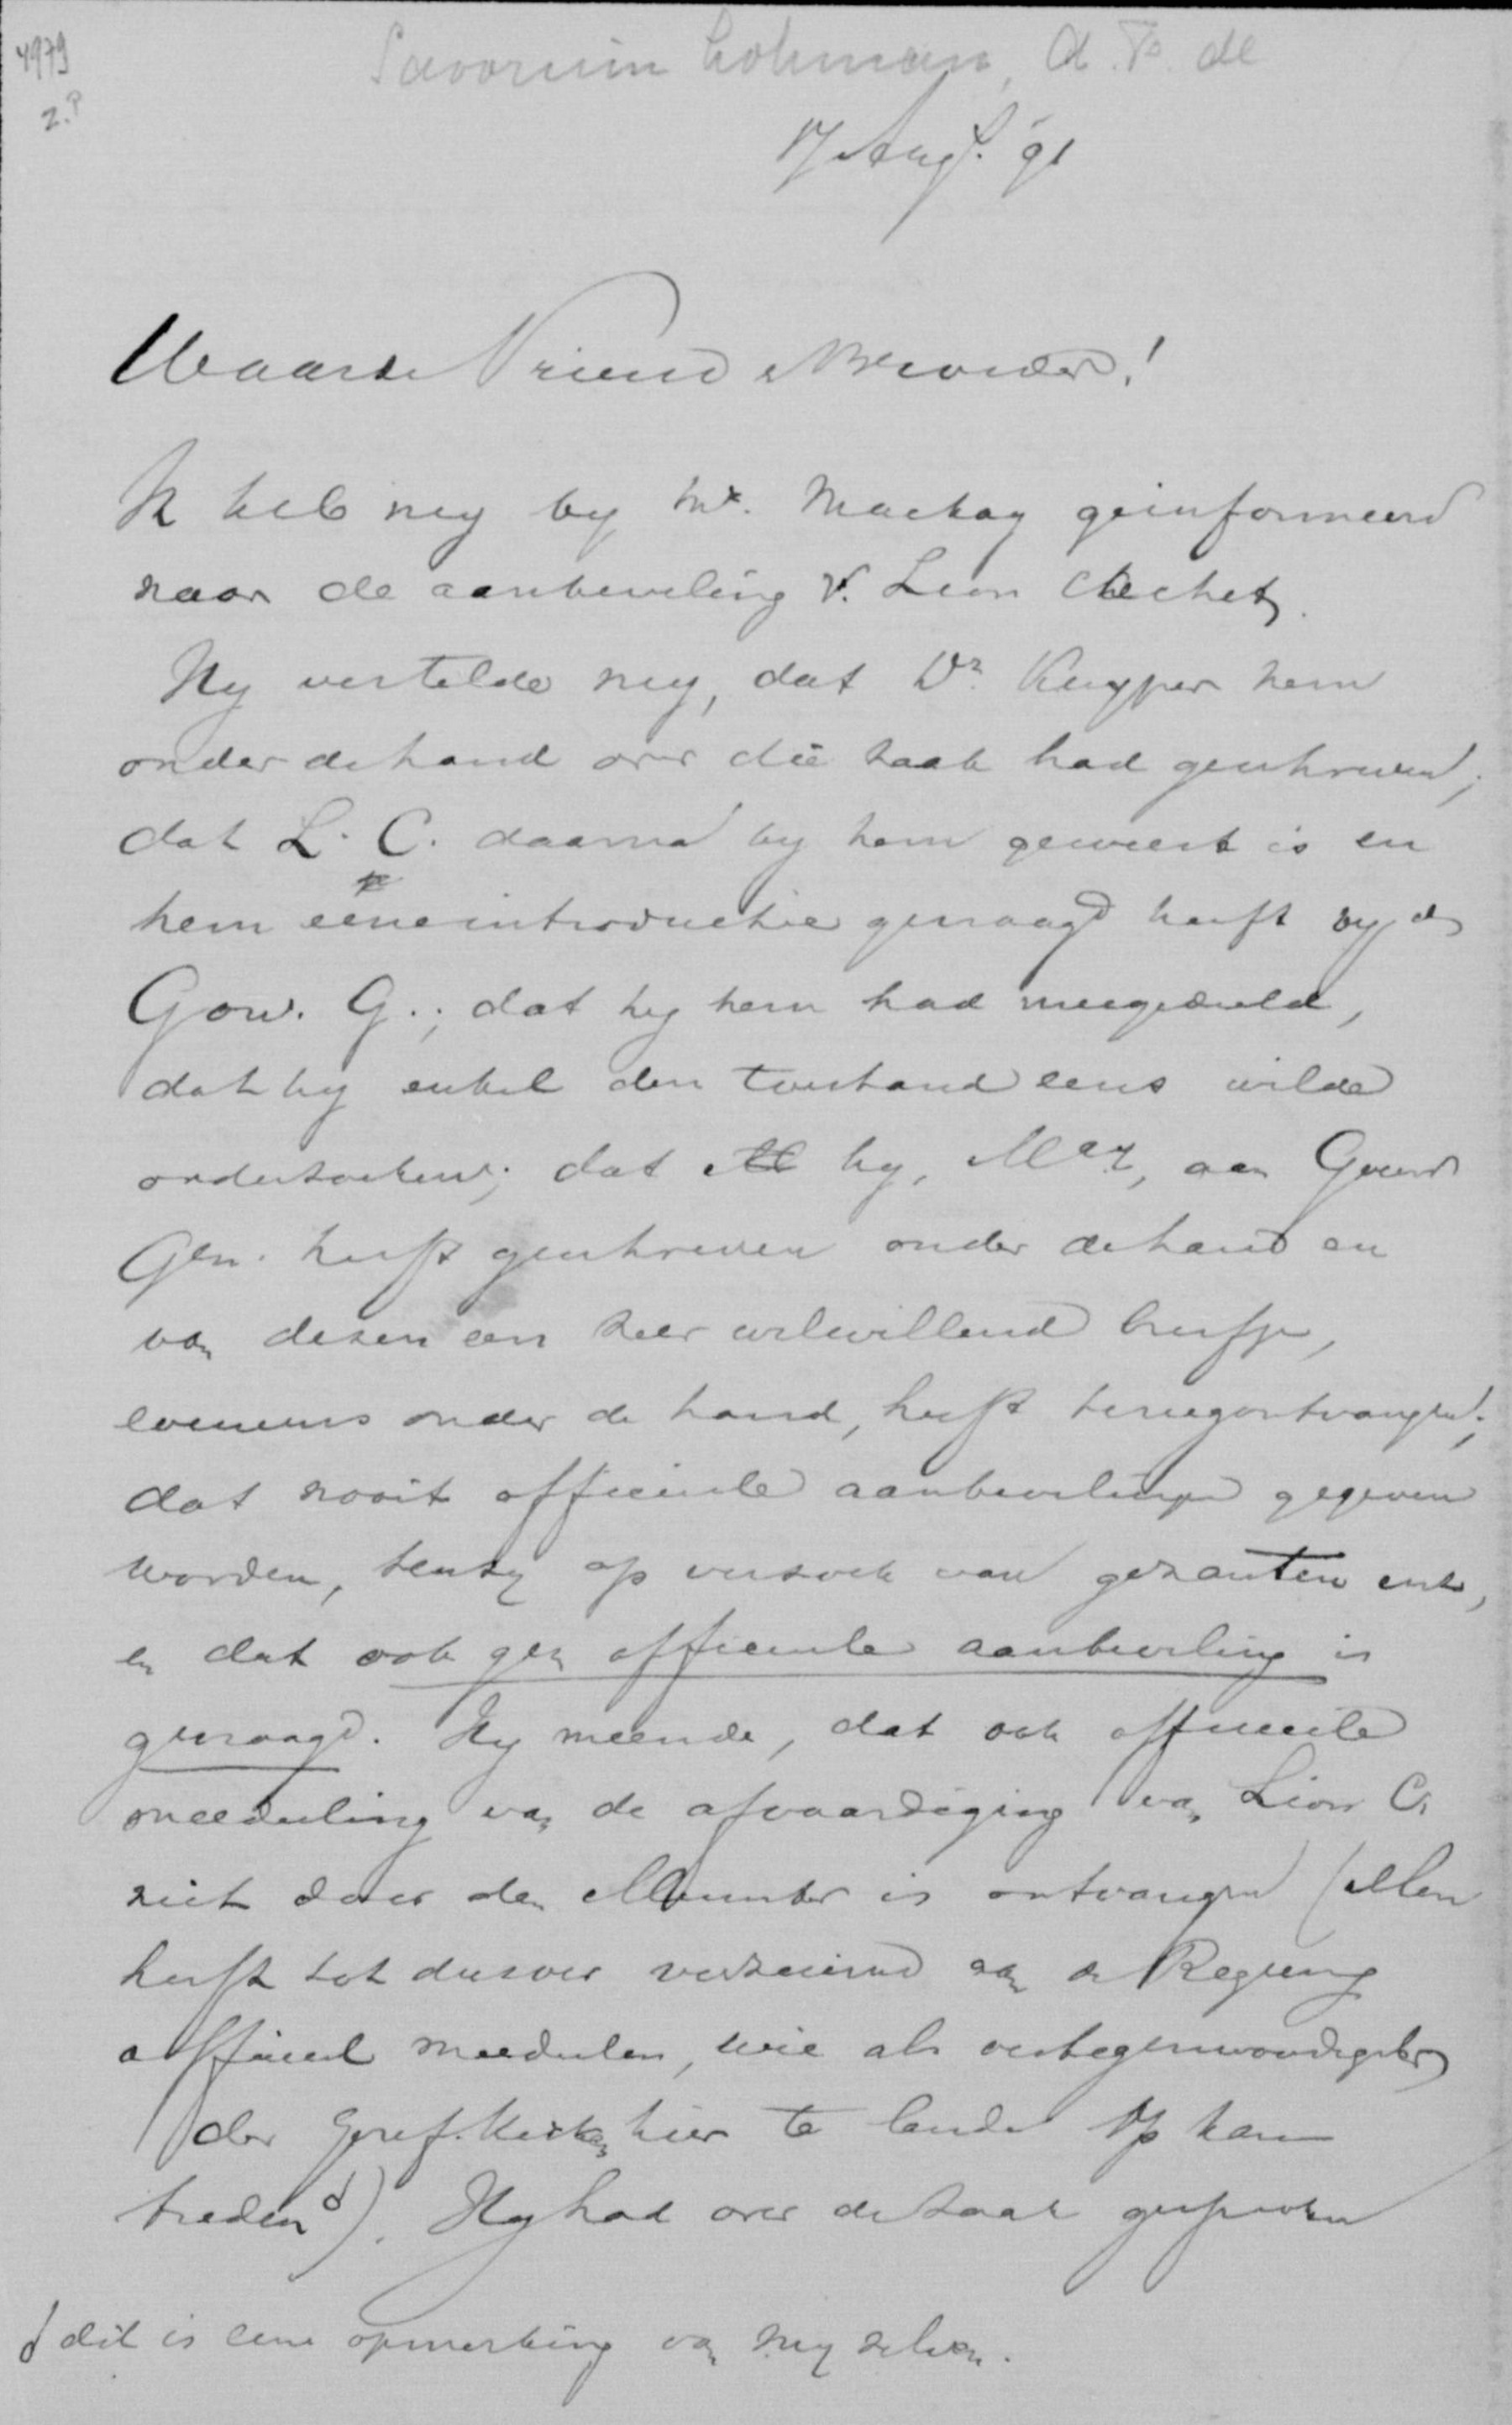 4979
z.p
Savornin Lohman, A. F. de
17 Aug. '91
Waarde Vriend & Broeder!
Ik heb my by Mr. Mackay geinformeerd
naar de aanbeveling v. Lion Cachet.
Hy vertelde my, dat Dr. Kuyper hem
onder de hand over die zaak had geschreven;
dat L. C. daarna by hem geweest is en
hem eene introductie gevraagd heeft by den
Gouv. G.; dat hy hem had meegedeeld,
dat hy enkel den toestand eens wilde
onderzoeken; dat hy, May, aan Gouvr
Gen. heeft geschreven onder de hand en
van dezen een zeer welwillend briefje,
eveneens onder de hand, heeft terugontvangen;
dat nooit officieele aanbevelingen gegeven
worden, tenzy op verzoek van gezanten enz,
en dat ook geen officieele aanbeveling is
gevraagd. Hy meende, dat ook officieele
meedeeling van de afvaardiging van Lion C.
niet door den Minister is ontvangen (Men
heeft tot dusver verzuimd aan de Regeering
officieel meedeelen, wie als vertegenwoordigster
der Geref. Kerken hier te lande op kan
treden ♂). Hy had over de zaak gesproken
♂ dit is eene opmerking van my zelven.